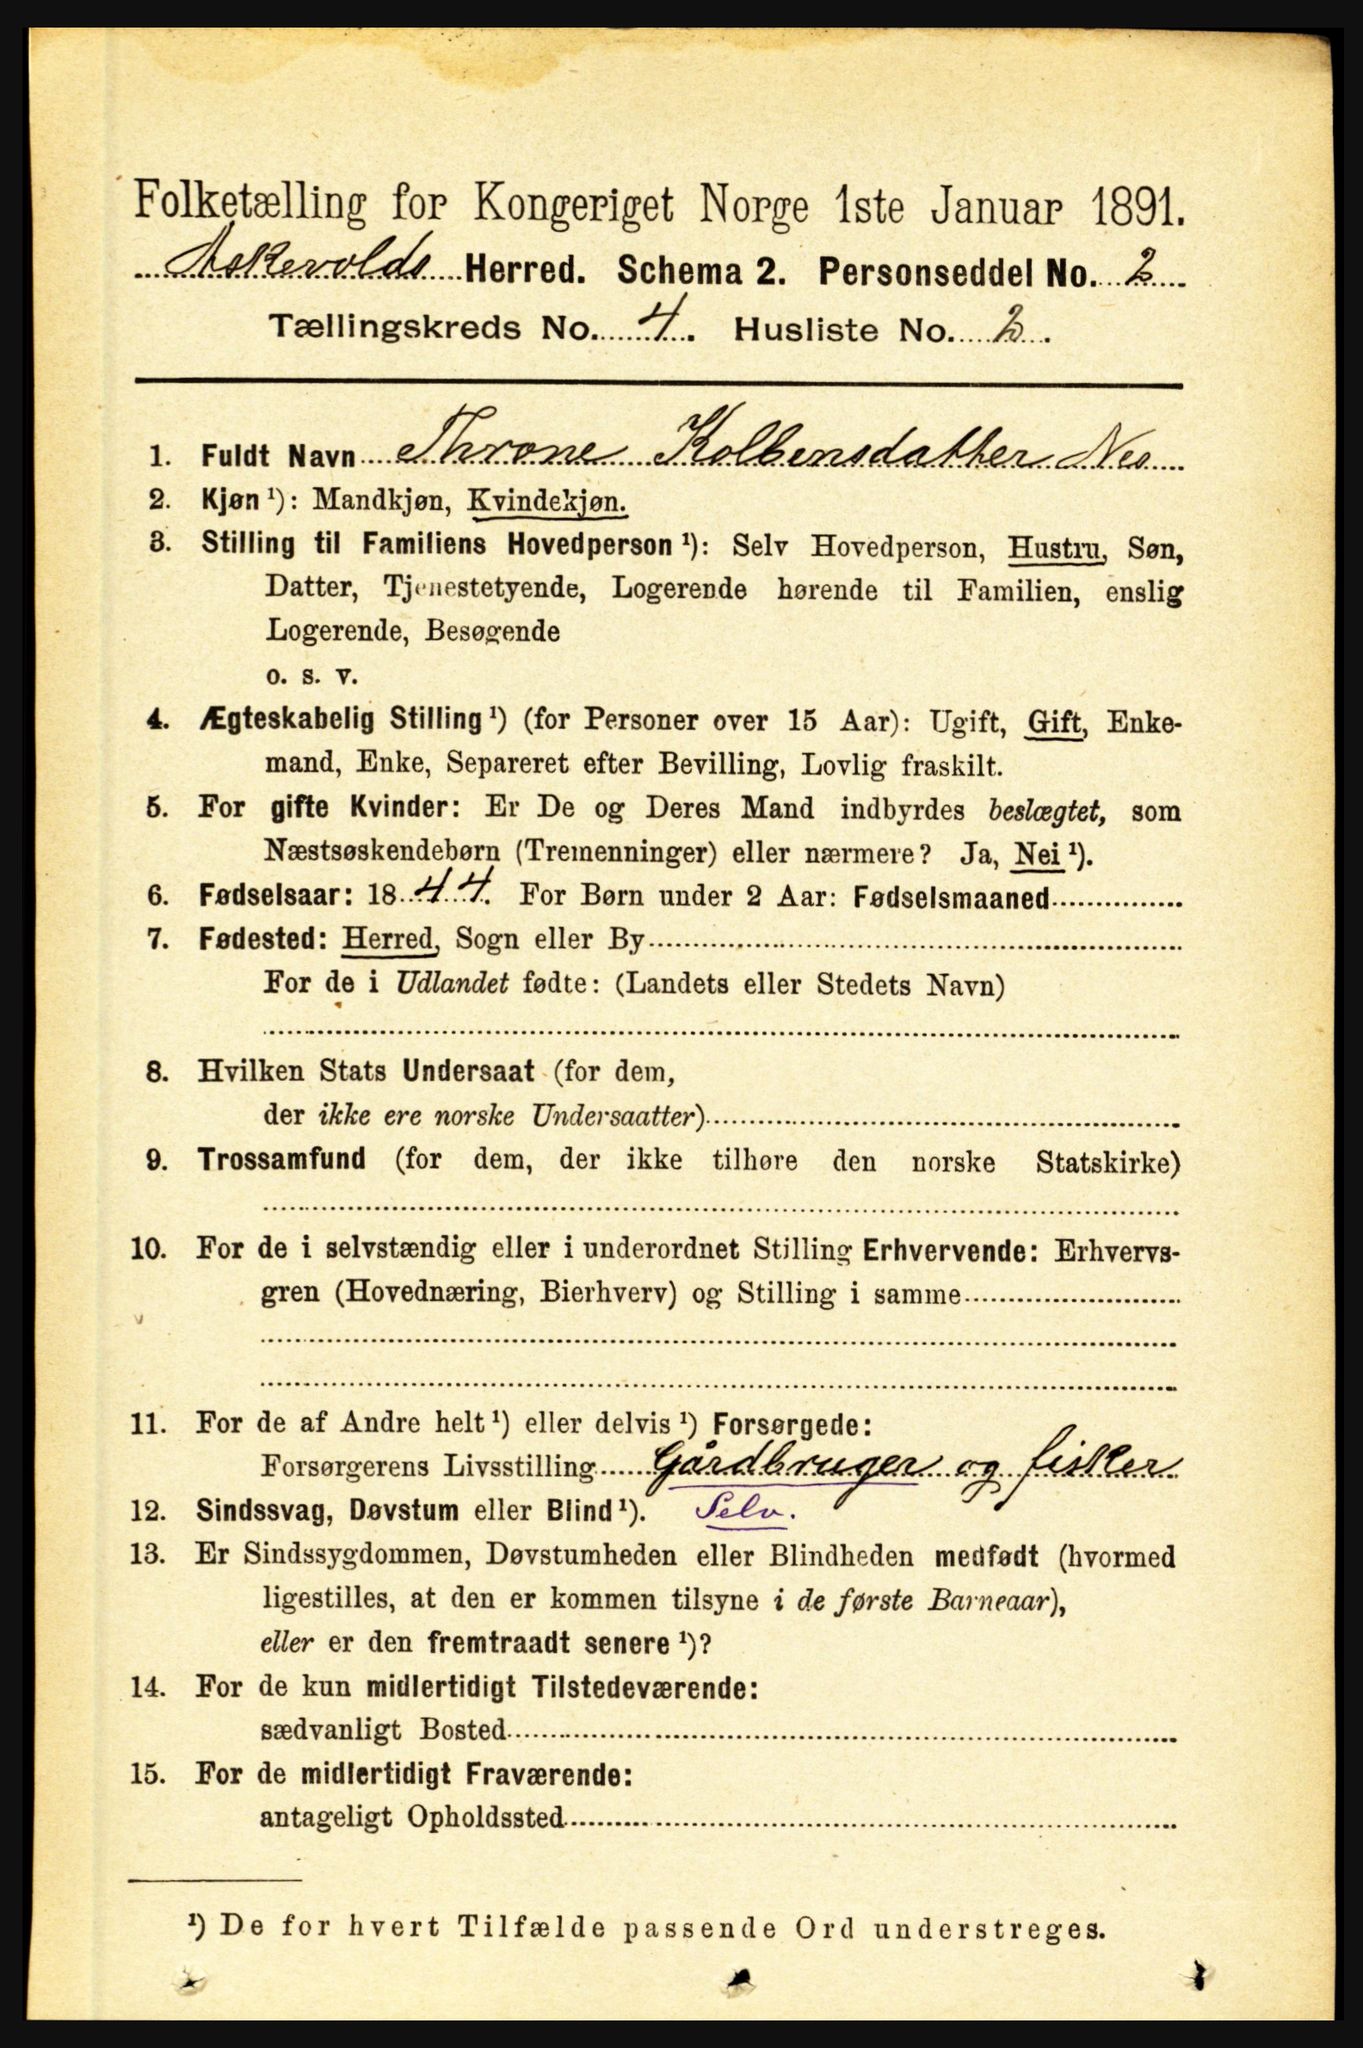 Folketælling for Kongeriget Norge 1ste Januar 1891.
Askevolds Herred. Schema 2. Personseddel No. 2
Tællingskreds No. 4. Husliste No. 2.
1. Fuldt Navn Throne Kolbensdatter Nes
2. Kjøn ¹): Mandkjøn, Kvindekjøn.
3. Stilling til Familiens Hovedperson ¹): Selv Hovedperson, Hustru, Søn,
Datter, Tjenestetyende, Logerende hørende til Familien, enslig
Logerende, Besøgende
o. s. v.
4. Ægteskabelig Stilling ¹) (for Personer over 15 Aar): Ugift, Gift, Enke-
mand, Enke, Separeret efter Bevilling, Lovlig fraskilt.
5. For gifte Kvinder: Er De og Deres Mand indbyrdes beslægtet, som
Næstsøskendebørn (Tremenninger) eller nærmere? Ja, Nei ¹).
6. Fødselsaar: 1844. For Børn under 2 Aar: Fødselsmaaned
7. Fødested: Herred, Sogn eller By
For de i Udlandet fødte: (Landets eller Stedets Navn)
8. Hvilken Stats Undersaat (for dem,
der ikke ere norske Undersaatter)
9. Trossamfund (for dem, der ikke tilhøre den norske Statskirke)
10. For de i selvstændig eller i underordnet Stilling Erhvervende: Erhvervs-
gren (Hovednæring, Bierhverv) og Stilling i samme
11. For de af Andre helt ¹) eller delvis ¹) Forsørgede:
Forsørgerens Livsstilling Gårdbruger og fisker
12. Sindssvag, Døvstum eller Blind ¹). Selv.
13. Er Sindssygdommen, Døvstumheden eller Blindheden medfødt (hvormed
ligestilles, at den er kommen tilsyne i de første Barneaar),
eller er den fremtraadt senere ¹)?
14. For de kun midlertidigt Tilstedeværende:
sædvanligt Bosted
15. For de midlertidigt Fraværende:
antageligt Opholdssted
¹) De for hvert Tilfælde passende Ord understreges.